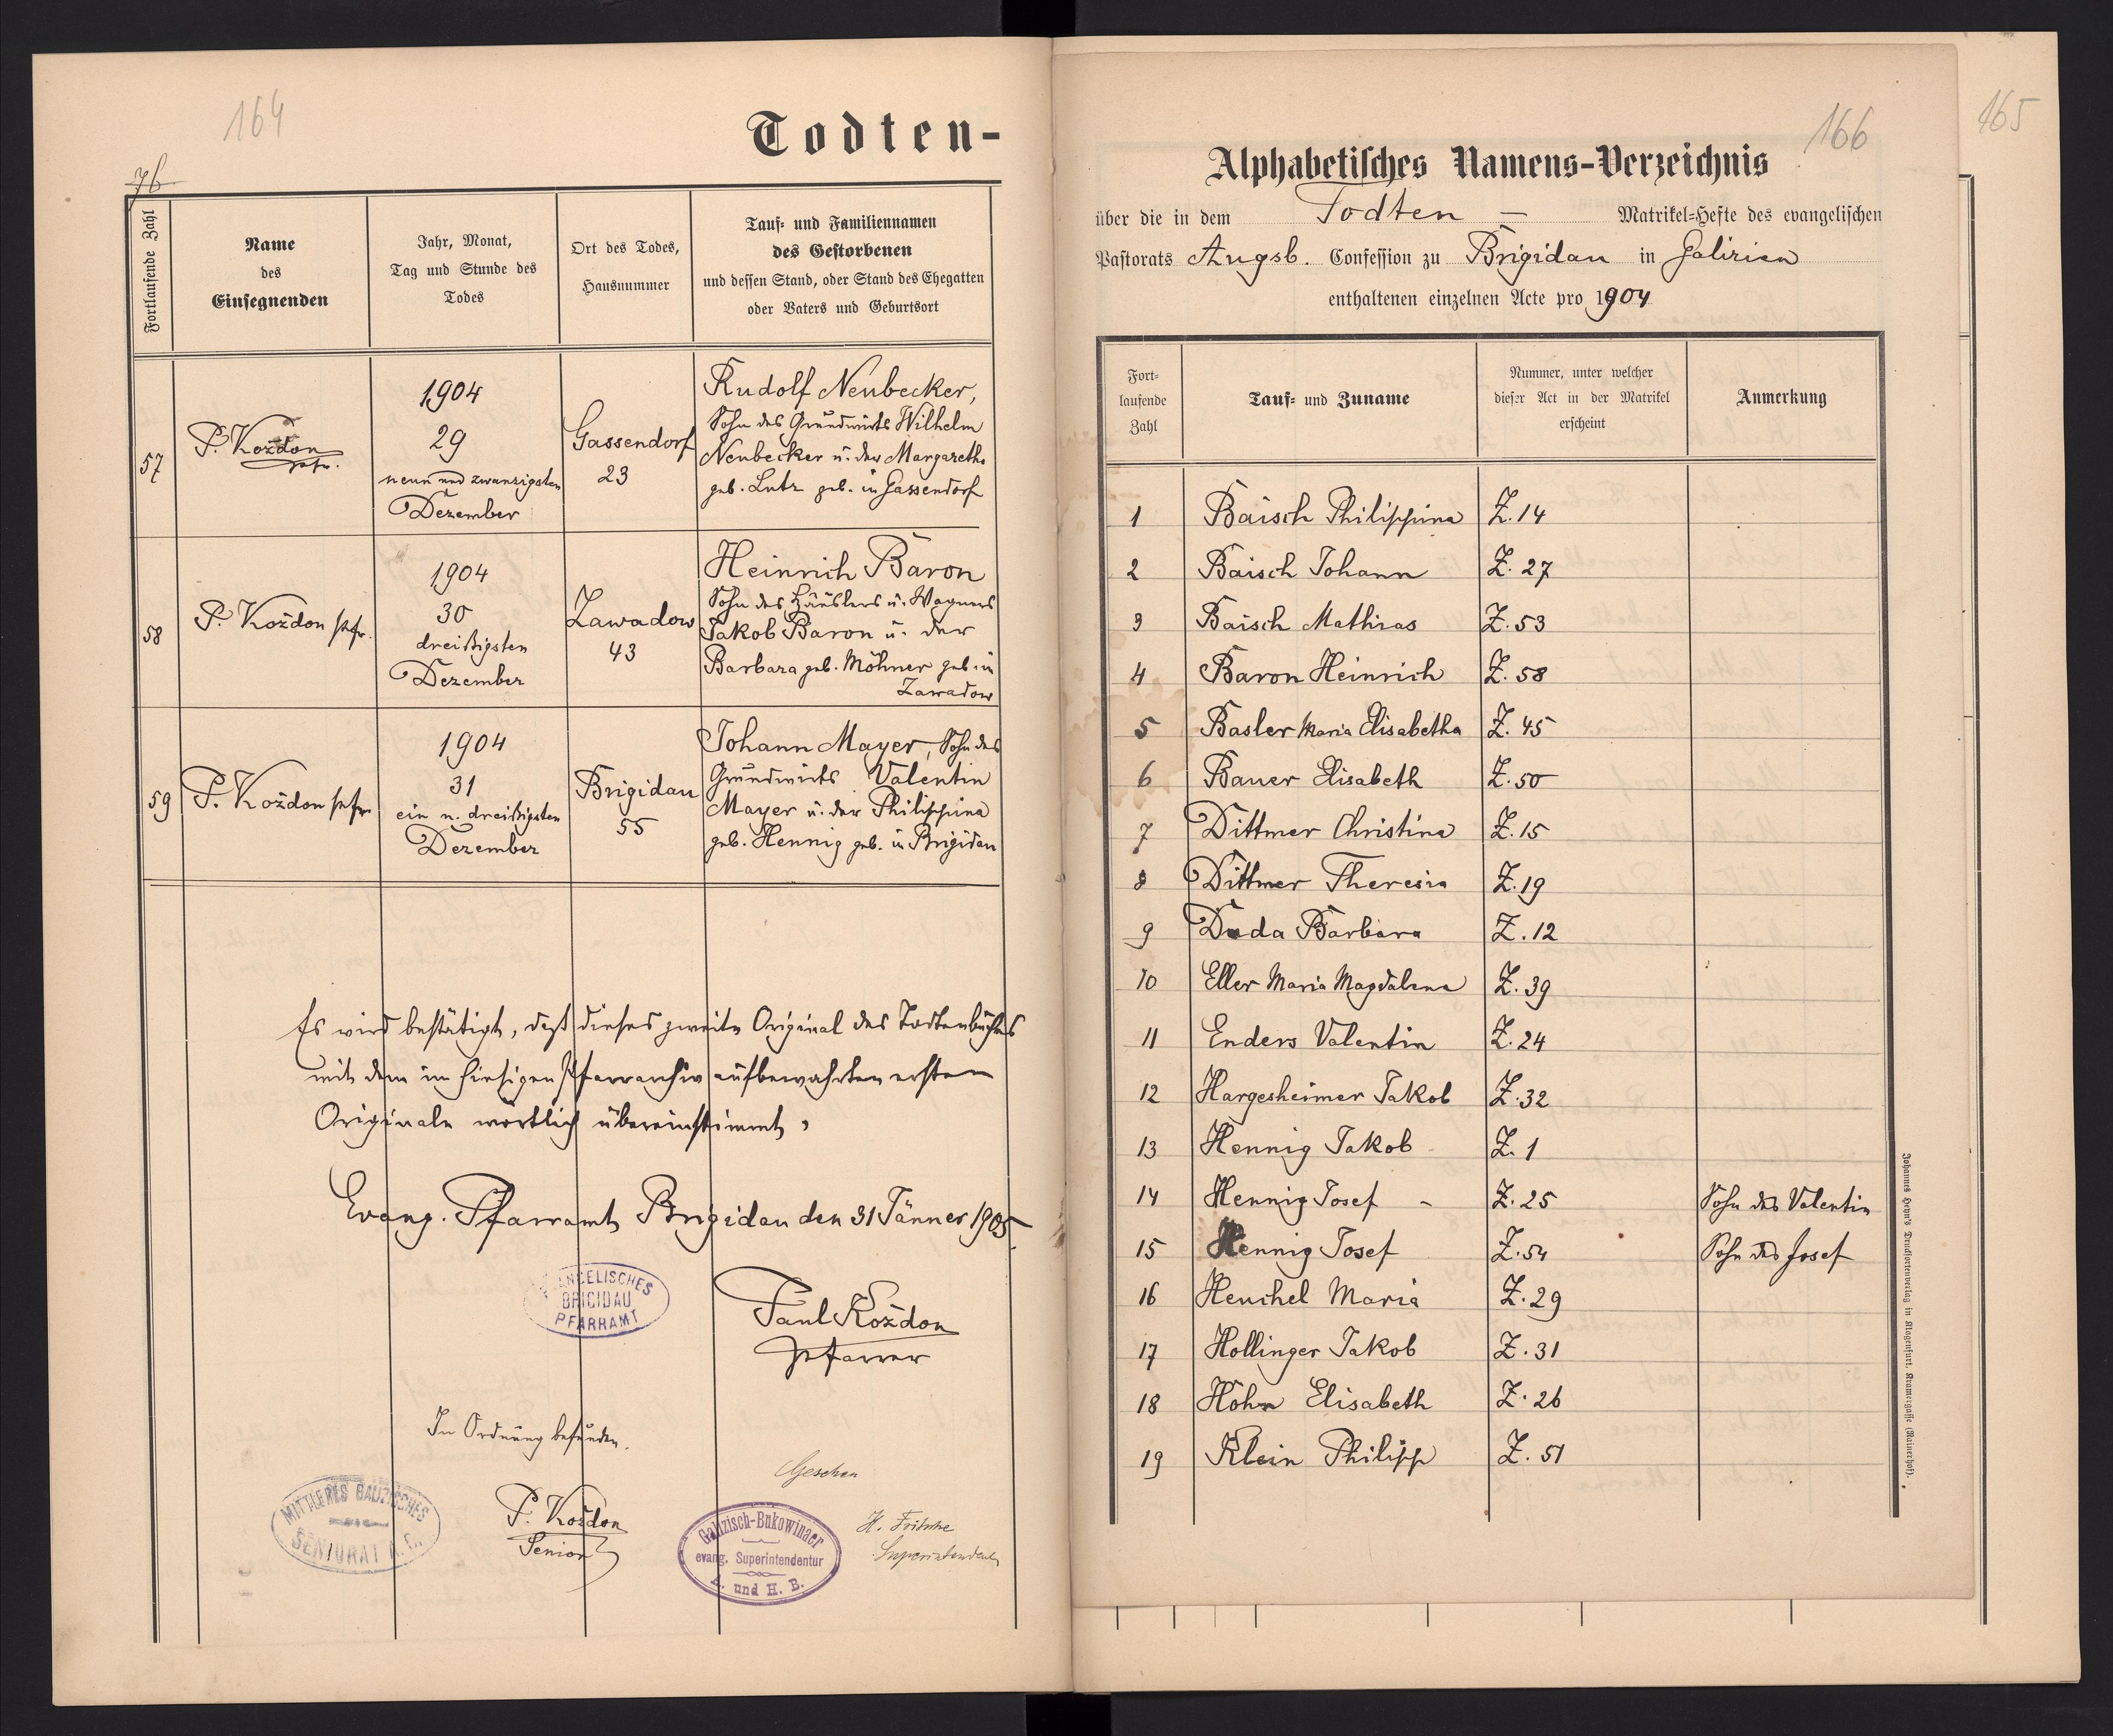 164
Todten-
76
Fortlaufende Zahl
Name
des
Einsegnenden
Jahr, Monat,
Tag und Stunde des
Todes
Ort des Todes,
Hausnummer
Tauf- und Familiennamen
des Gestorbenen
und dessen Stand, oder Stand des Ehegatten
oder Vaters und Geburtsort
57
P. Koždon
pfr.
1904
29
neun und zwanzigsten
Dezember
Gassendorf
23
Rudolf Neubecker,
Sohn des Grundwirts Wilhelm
Neubecker u. der Margaretha
geb. Lutz geb. in Gassendorf
58
P. Koždon pfr.
1904
30
dreißigsten
Dezember
Zawadow
43
Heinrich Baron
Sohn des Häuslers u. Wagners
Jakob Baron u. der
Barbara geb. Möhner geb. in
Zawadow
59
P. Koždon pfr.
1904
31
ein u. dreißigsten
Dezember
Brigidau
55
Johann Mayer, Sohn des
Grundwirts Valentin
Mayer u. der Philippina
geb. Hennig geb. in Brigidau
Es wird bestätigt, daß dieses zweite Original des Todtenbuches
mit dem im hiesigen Pfarrarchiv aufbewahrten ersten
Originale wörtlich übereinstimmt.
Evang. Pfarramt Brigidau den 31 Jänner 1905.
EVANGELISCHES
BRIGIDAU
PFARRAMT
Paul Koždon
Pfarrer
In Ordnung befunden.
MITTLERES GALIZISCHES
SENIORAT A. C.
P. Koždon
Senior
Gesehen
Galizisch-Bukowinaer
evang. Superintendentur
A. und H. B.
H. Fritsche
Superintendent
165
166
Alphabetisches Namens-Verzeichnis
über die in dem Todten — Matrikel-Hefte des evangelischen
Pastorats Augsb. Confession zu Brigidau in Galizien
enthaltenen einzelnen Acte pro 1904
Fort-
laufende
Zahl
Tauf- und Zuname
Nummer, unter welcher
dieser Act in der Matrikel
erscheint
Anmerkung
1 Baisch Philippina Z. 14
2 Baisch Johann Z. 27
3 Baisch Mathias Z. 53
4 Baron Heinrich Z. 58
5 Basler Maria Elisabetha Z. 45
6 Bauer Elisabeth Z. 50
7 Dittmer Christina Z. 15
8 Dittmer Theresia Z. 19
9 Duda Barbara Z. 12
10 Eller Maria Magdalena Z. 39
11 Enders Valentin Z. 24
12 Hargesheimer Jakob Z. 32
13 Hennig Jakob Z. 1
14 Hennig Josef - Z. 25 Sohn des Valentin
15 Hennig Josef Z. 54 Sohn des Josef
16 Henchel Maria Z. 29
17 Hollinger Jakob Z. 31
18 Höhn Elisabeth Z. 26
19 Klein Philipp Z. 51
Johannes Heyn's Drucksortenverlag in Klagenfurt, Kramergasse (Rainerhof).